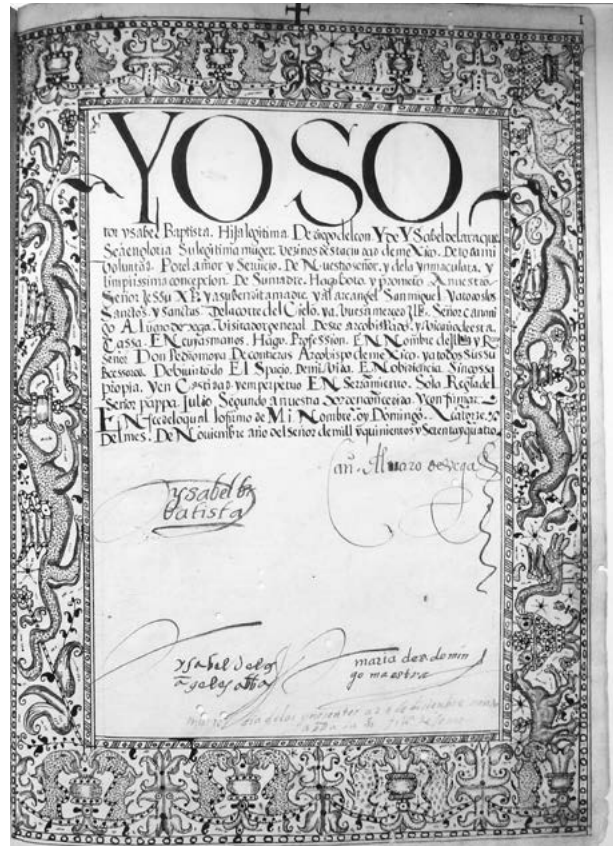 1
YO SO
ror ysabel Baptista. Hija legitima. De diego deleon Y De YSabel delaraque
Sea englo­ria Sulegitima muger. vezinos destaciudad demexico. De todami
voluntad. Porel amor y Servicio. De Nuestro señor, y dela ynmaculata, y
limpissima concepcion. De Sumadre. Hago boto, y prometo. A nuestro
Señor Jessu XRo y asubendita madre, y al arcangel San miguel. y atodos los
Sanctos, y sanctas. Dela corte del Cielo, y a. vuesa merced Señor canoni
go Aluaro de vega. Visitador general Deste arcobispado, y vicario de esta
Cassa. EN cuyas manos. Hago. Profession. EN Nombre del y R
Señor. Don Pedro moya De contreras Arcobispo de mexico. ya todos sus su
bcessores. De biuir todo El Spacio. De mi bida. EN obidiencia Sin cossa
propia, y en Castidad. y em perpetuo EN Serramiento. Sola Regla del
Señor pappa Julio Segundo a nuestra orden concedida. y confirmar.
EN fee delo qual lo firmo de Mi Nombre. oy Domingo. Xatorze.
Del mes. De Noviembre año del Señor de mill y quinientos y Setenta y quatro.
can. Aluaro de vega
ysabel b
batista
ysabel delos
ageles abba
maria de s domin
go maestra
de diciembre